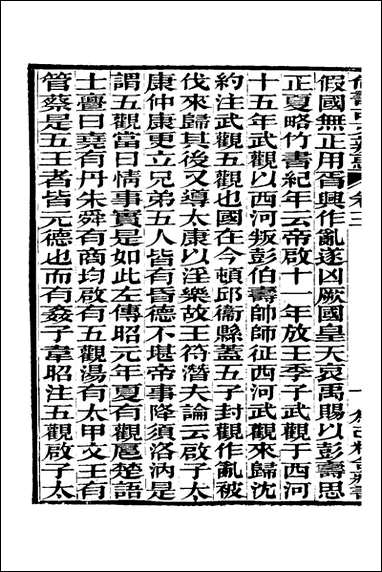 假國無正用胥興作亂遂凶厥國皇天哀禹賜以彭壽思
正夏略竹書紀年云帝啟十一年放王季子武觀于西河
十五年武觀以西河叛彭伯壽帥師征西河武觀來歸沈
約注武觀五觀也國在今頓邱衞縣蓋五子封觀作亂被
伐來歸其後又導太康以淫樂故王符潛夫論云啟子太
康仲康更立兄弟五人皆有昏德不堪帝事降須洛汭是
謂五觀當曰情事實是如此左傳昭元年夏有觀扈楚語
士亹曰堯有丹朱舜有商均啟有五觀湯有太甲文王有
管蔡是五王者皆元德也而有姦子韋昭注五觀啟子太